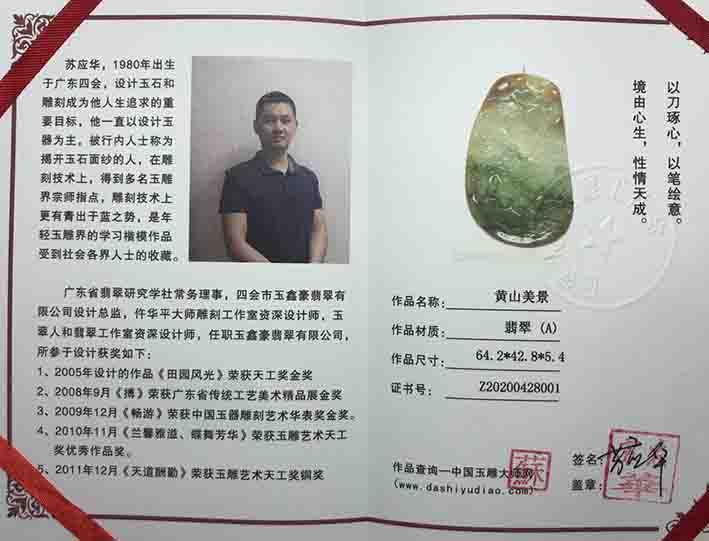 苏应华，1980年出生
于广东四会，设计玉石和
雕刻成为他人生追求的重
要目标，他一直以设计玉
器为主。被行内人士称为
揭开玉石面纱的人，在雕
刻技术上，得到多名玉雕
界宗师指点，雕刻技术上
更有青出于蓝之势，是年
轻玉雕界的学习楷模作品
受到社会各界人士的收藏。
广东省翡翠研究学社常务理事，四会市玉鑫豪翡翠有
限公司设计总监，仵华平大师雕刻工作室资深设计师，玉
翠人和翡翠工作室资深设计师，任职玉鑫豪翡翠有限公司，
所参于设计获奖如下：
1、2005年设计的作品《田园风光》荣获天工奖金奖
2、2008年9月《搏》荣获广东省传统工艺美术精品展金奖
3、2009年12月《畅游》荣获中国玉器雕刻艺术华表奖金奖。
4、2010年11月《兰馨雅溢、蝶舞芳华》荣获玉雕艺术天工
奖优秀作品奖。
5、2011年12月《天道酬勤》荣获玉雕艺术天工奖铜奖
以刀琢心，以笔绘意。
境由心生，性情天成。
作品名称：黄山美景
作品材质：翡翠（A）
作品尺寸：64.2*42.8*5.4
证书号：Z20200428001
作品查询—中国玉雕大师网
(www.dashiyudiao.com)
蘇
签名：
盖章：
華